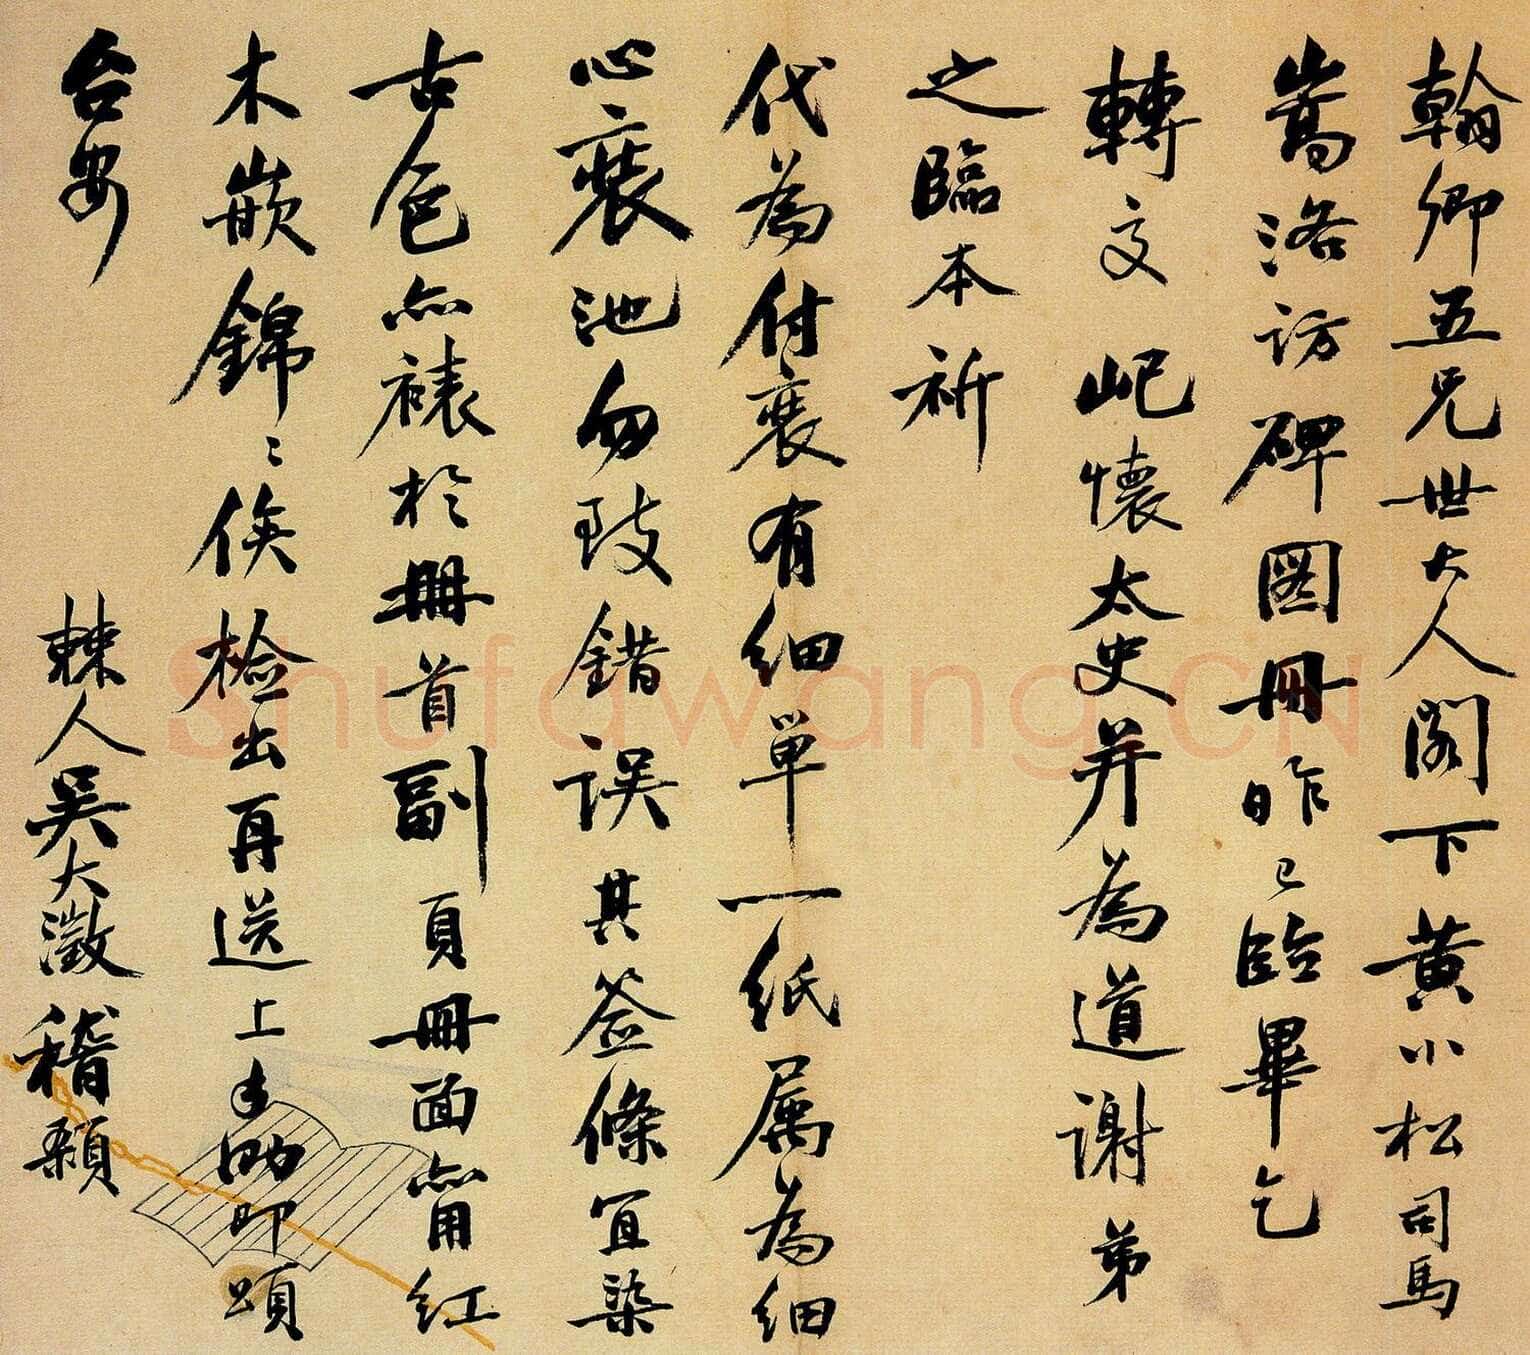 翰卿五兄世大人閣下黄小松司馬
嵩洛訪碑图冊昨已臨畢乞
轉交屺懷太史并為道謝弟
之臨本祈
代為付裝有细单一纸属為细
心裝池勿致錯误其签條宜染
古色亦裱於冊首副頁冊面亦用红
木嵌錦錦俟檢出再送上手泐即頌
台安
棘人吴大澂稽顙
Shufawang.CN